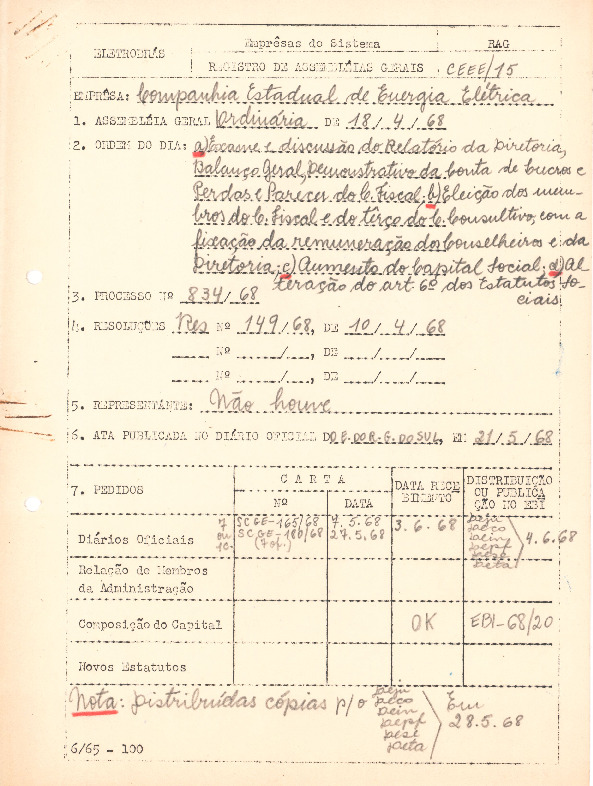 ELETROBRÁS
Emprêsas do Sistema
RAG
REGISTRO DE ASSEMBLÉIAS GERAIS
CEEE/15
EMPRÊSA: Companhia Estadual de Energia Elétrica
1. ASSEMBLÉIA GERAL Ordinária DE 18/4/68
2. ORDEM DO DIA: a) Exame e discussão do Relatório da Diretoria,
Balanço Geral, Demonstrativo da Conta de Lucros e
Perdas e Parecer do C. Fiscal; b) Eleição dos mem-
bros do C. Fiscal e do têrço do C. Consultivo, com a
fixação da remuneração dos Conselheiros e da
Diretoria; c) Aumento do Capital Social; d) Al
teração do art. 6º dos Estatutos So-
ciais
3. PROCESSO Nº 834/68
4. RESOLUÇÕES Res Nº 149/68, DE 10/4/68
____ Nº ___/___, DE ___/___/___
____ Nº ___/___, DE ___/___/___
5. REPRESENTANTE: Não houve
6. ATA PUBLICADA NO DIÁRIO OFICIAL DO E. DO R. G. DO SUL, EM 21/5/68
7. PEDIDOS
CARTA
Nº
DATA
DATA RECE
BIMENTO
DISTRIBUIÇÃO
OU PUBLICA
ÇÃO NO EBI
Diários Oficiais
7 ou 10.
SCGE-165/68 7.5.68
SCGE-180/68 27.5.68
3.6.68
deju
deço
dein
depf
dese
deta
4.6.68
Relação de Membros
da Administração
Composição do Capital
OK
EBI-68/20
Novos Estatutos
Nota: Distribuídas cópias p/o
deju
deço
dein
depf
dese
deta
Em
28.5.68
6/65 - 100